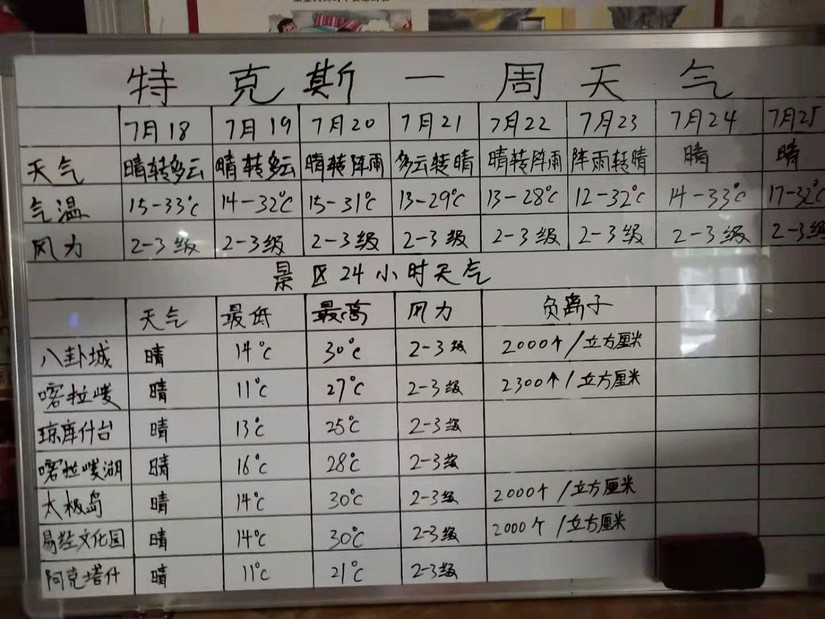 特克斯一周天气
7月18 7月19 7月20 7月21 7月22 7月23 7月24 7月25
天气 晴转多云 晴转多云 晴转阵雨 多云转晴 晴转阵雨 阵雨转晴 晴 晴
气温 15-33℃ 14-32℃ 15-31℃ 13-29℃ 13-28℃ 12-32℃ 14-33℃ 17-32℃
风力 2-3级 2-3级 2-3级 2-3级 2-3级 2-3级 2-3级 2-3级
景区24小时天气
天气 最低 最高 风力 负离子
八卦城 晴 14℃ 30℃ 2-3级 2000个/立方厘米
喀拉峻 晴 11℃ 27℃ 2-3级 2300个/立方厘米
琼库什台 晴 13℃ 25℃ 2-3级
喀拉峻湖 晴 16℃ 28℃ 2-3级
太极岛 晴 14℃ 30℃ 2-3级 2000个/立方厘米
易经文化园 晴 14℃ 30℃ 2-3级 2000个/立方厘米
阿克塔什 晴 11℃ 21℃ 2-3级